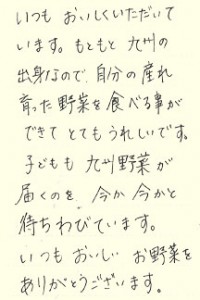 いつも おいしくいただいて
います。もともと 九州の
出身なので、自分の産れ
育った野菜を食べる事が
できて とてもうれしいです。
子どもも 九州野菜が
届くのを 今か 今かと
待ちわびています。
いつも おいしい お野菜を
ありがとうございます。